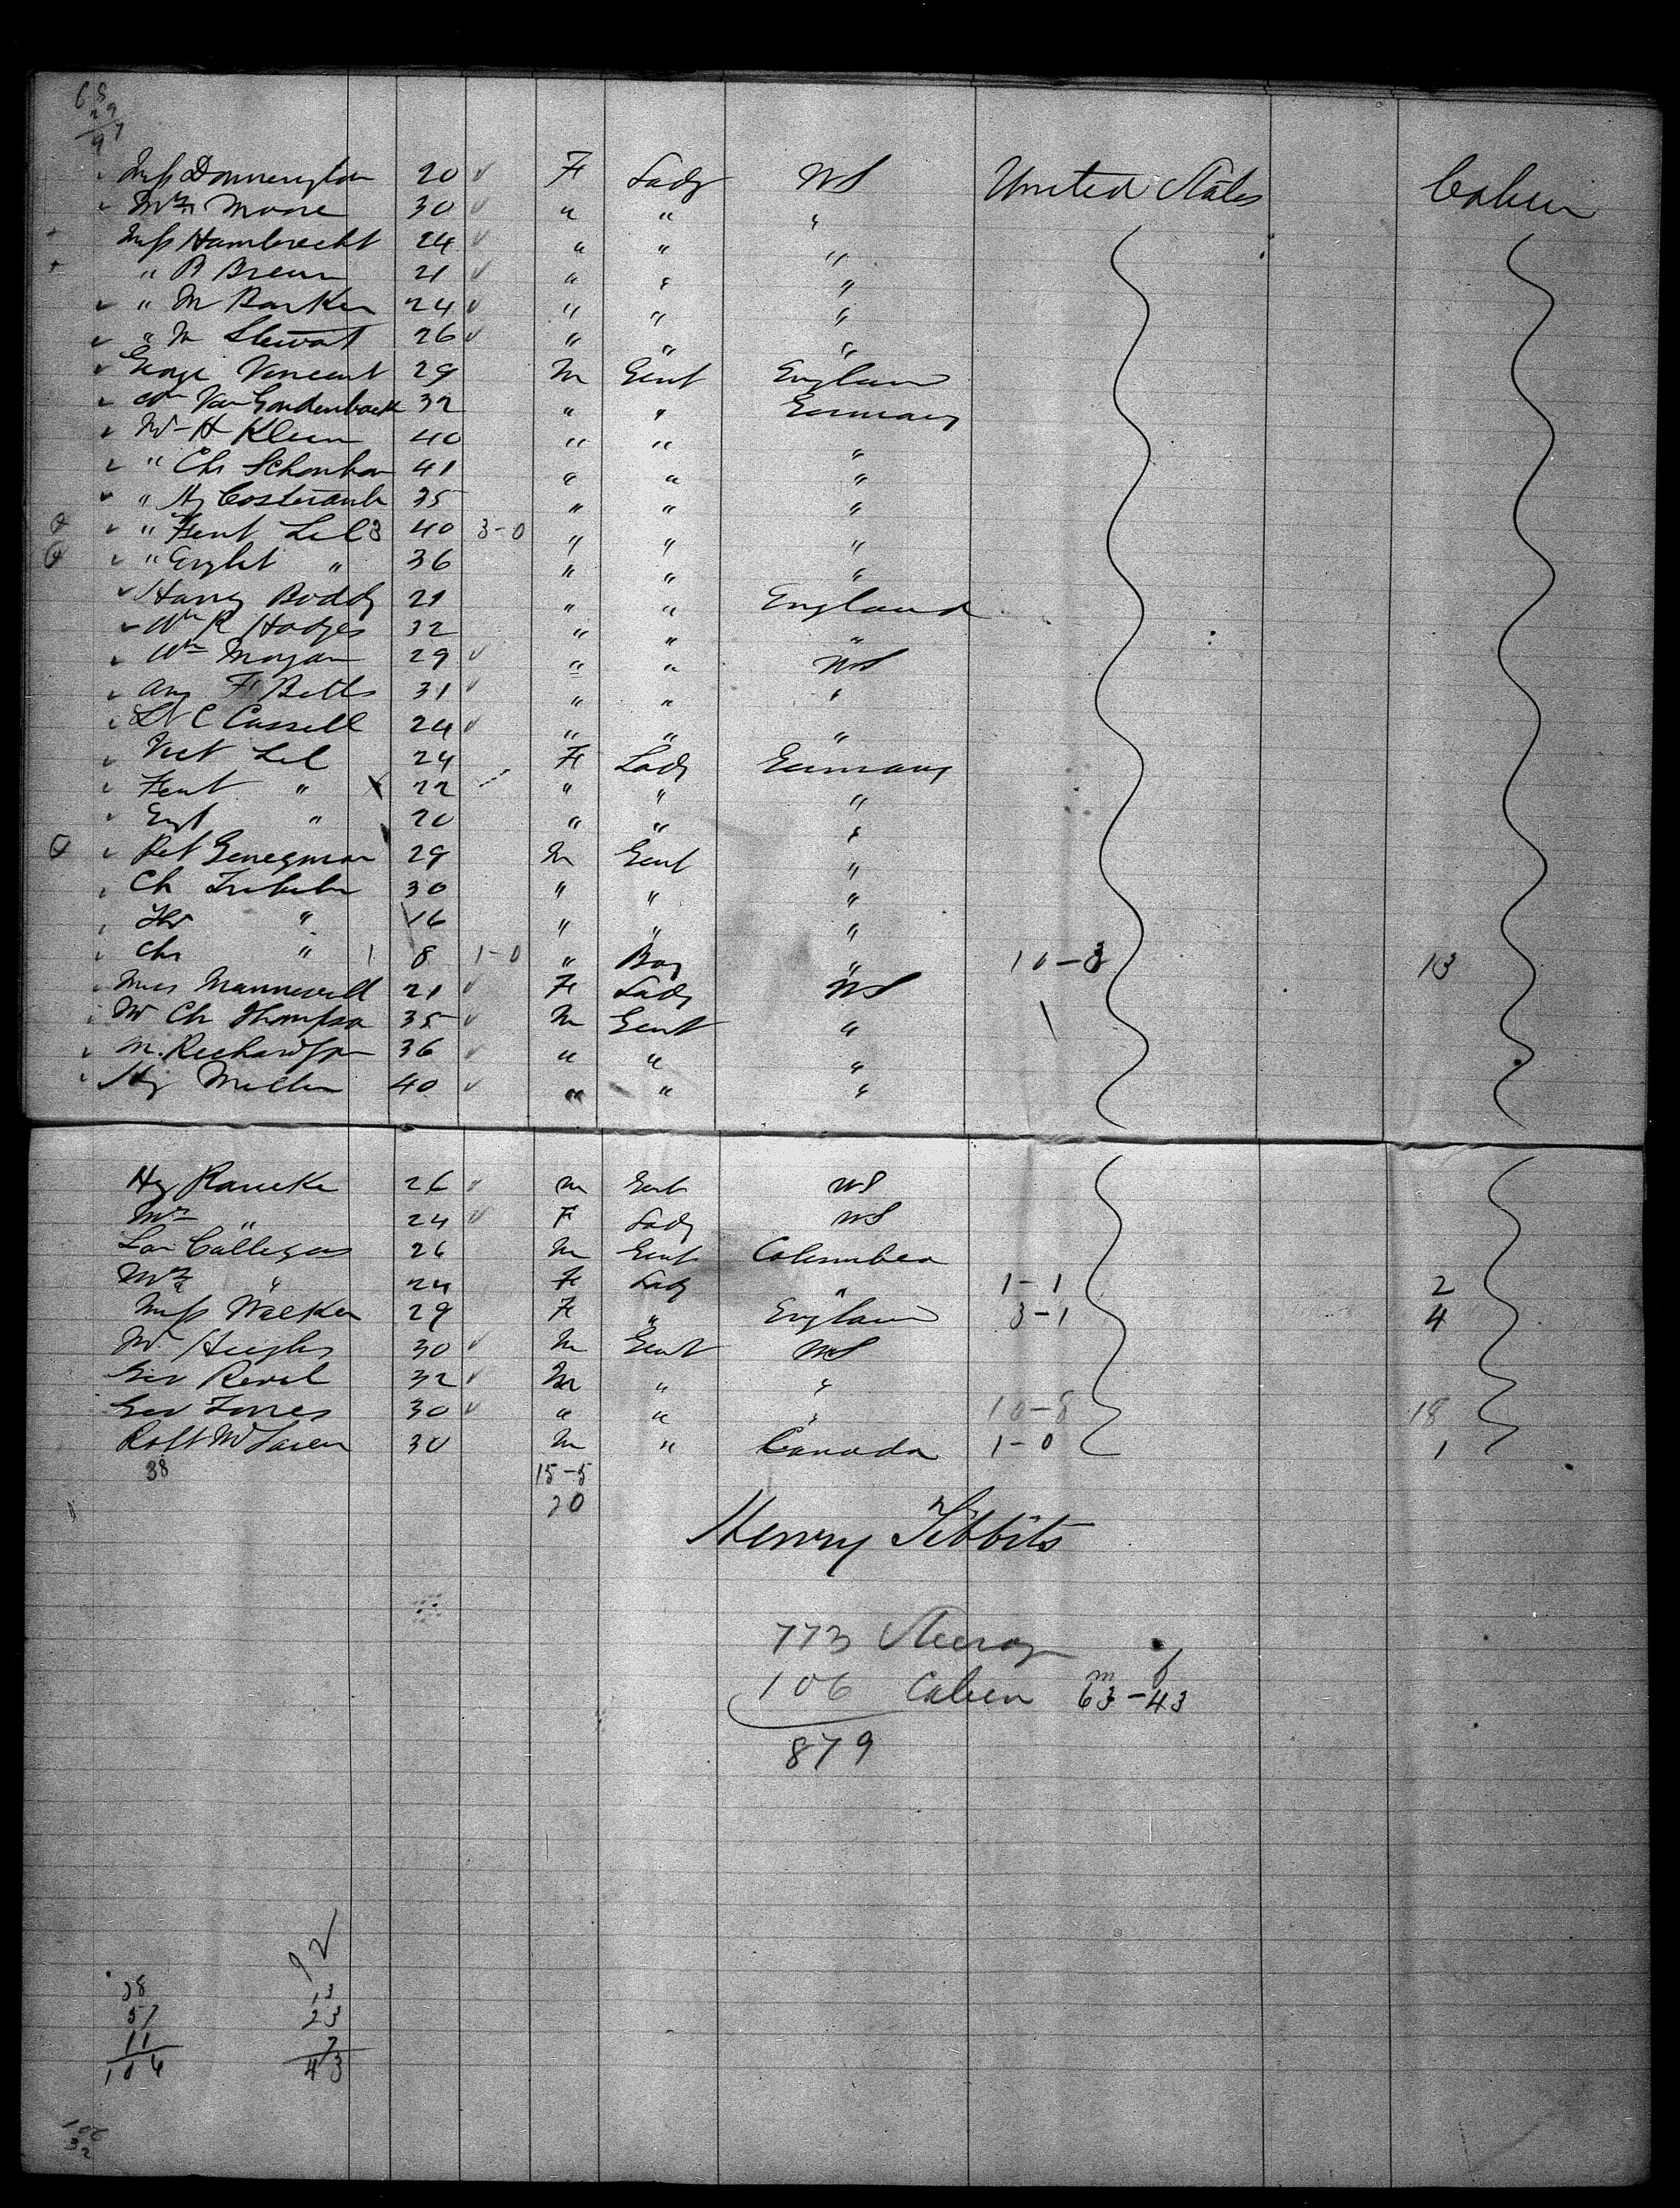 68
29
97
Miss Donnington 20 F Lady US United States Cabin
Mrs Moore 30 " " "
Miss Hambrecht 24 " " "
" B Breun 21 " " "
" M Barker 24 " " "
" M Stewart 26 " " "
George Vincent 29 M Gent England
Wm Van Gordenback 32 " " Germany
Mr H Klein 40 " " "
" Chr 41 " " "
" Hy 35 " " "
" Fent Lel 3 40 3-0 " " "
" Englt " 36 " " "
Harry Boddy 21 " " England
Wm R Hodges 32 " " "
Wm Morgan 29 " " US
Aug F Betts 31 " " "
Lt C Cassell 24 " " "
Vict Lel 24 F Lady Germany
Fent " 22 " " "
Engt " 20 " " "
Pet 29 M Gent "
Ch 30 " " "
" 16 " " "
Chr " 1 8 1-0 " Boy " 10-3 13
Miss Mannewell 21 F Lady US
Mr Ch Thompson 35 M Gent "
M. Richardson 36 " " "
Hy Miller 40 " " "
Hy Raneke 26 M Gent US
Mrs " 24 F Lady US
Callegas 26 M Gent Columbea
Mrs " 24 F Lady " 1-1 2
Miss Walker 29 F " England 3-1 4
Mr Hughs 30 M Gent US
Geo Revel 32 M " "
Geo Jones 30 " " " 10-8 18
Robt McLaren 30 M " Canada 1-0 1
38 15-5
20
Henry Tibbits
773 Steerage
m f
106 Cabin 63-43
879
38 13
57 23
11 7
106 43
106
32